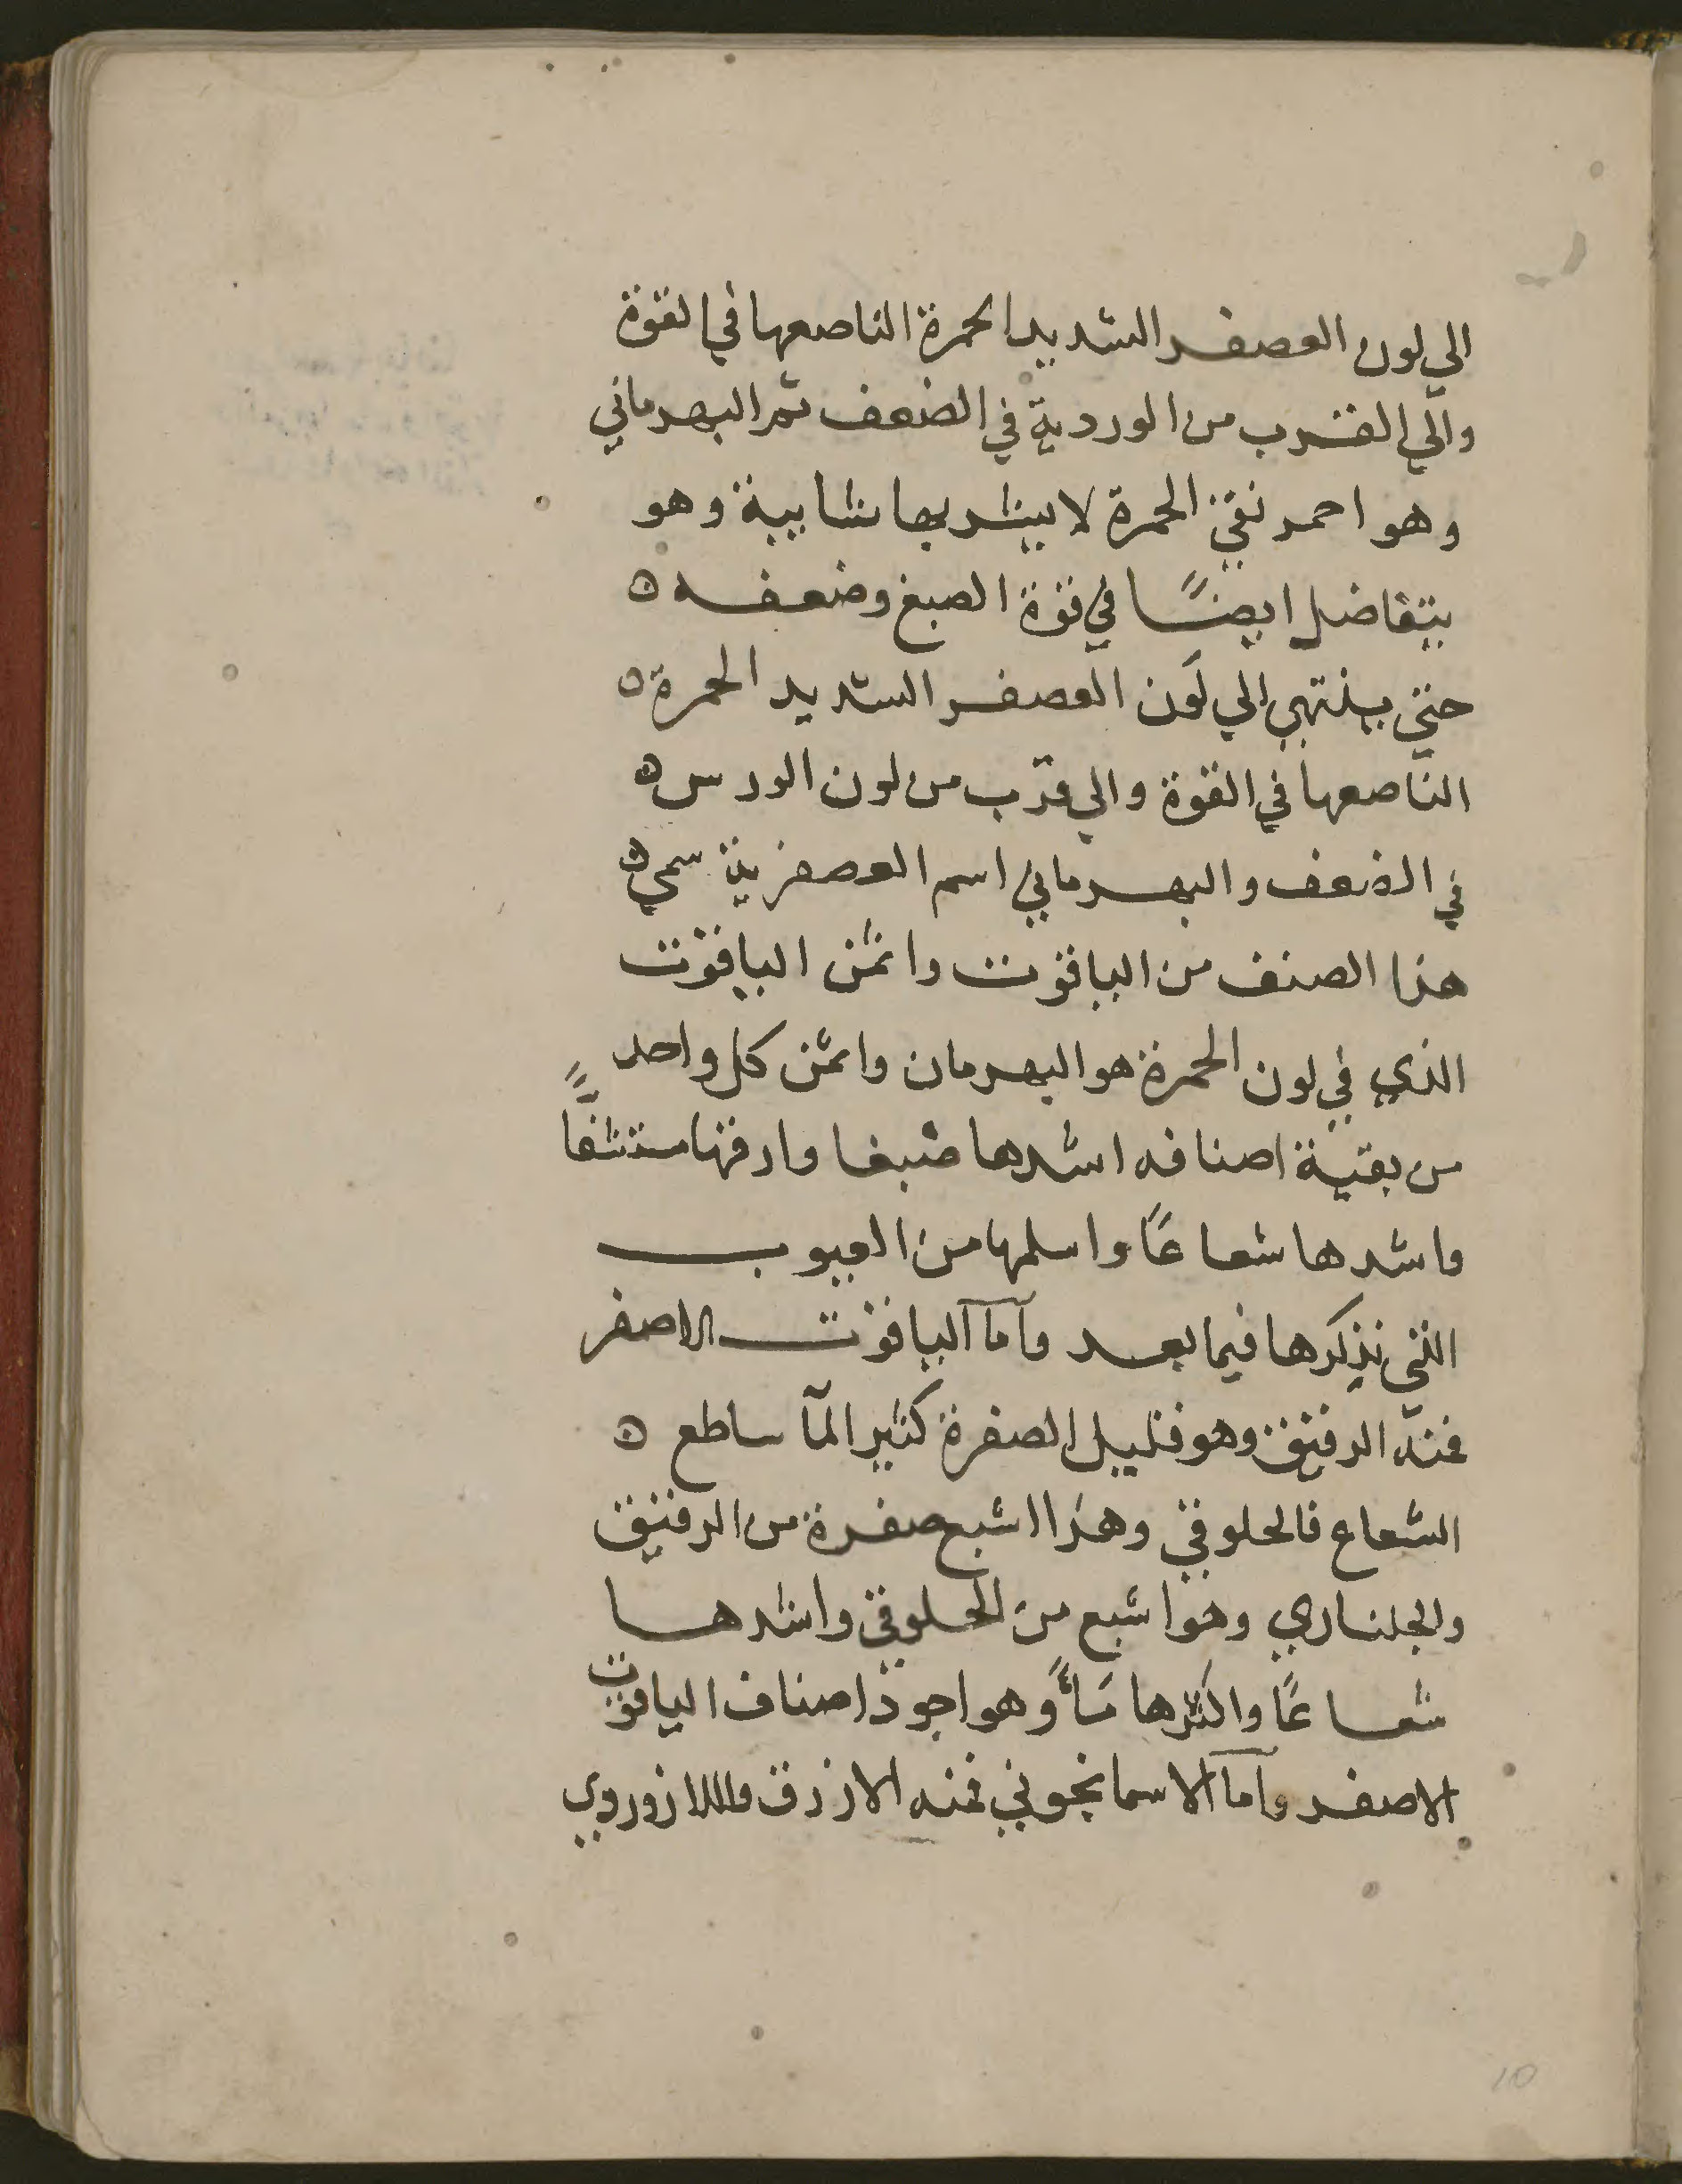 الي لون العصفر الشديد الحمرة الناصعها في القوة
والي القرب من الوردية في الضعف ثمر البهرماني
وهو احمر نقي الحمرة لا يشربها شايبة وهو
يتفاضل ايضًا في قوة الصبغ وضعفه ه
حتي ينتهي الي لون العصفر الشديد الحمرة ه
الناصعها في القوة والي قرب من لون الورس ه
في الضعف والبهرماني اسم العصفر ية سمي ه
هذا الصنف من الياقوت واثمن الياقوت
الذي في لون الحمرة هو البهرمان واثمن كل واحد
من بقية اصنافه اشدها صبغا وارقها مستشفًّا
واشدها شعاعًا واسلمها من العيوب
التي نذكرها فيما بعد واما الياقوت الاصفر
فمنه الرقيق وهو قليل الصفرة كثير المآ ساطع ه
الشعاع فالحلوقي وهذا اشبع صفرة من الرقيق
والجلناري وهو اشبع من الحلوقي واشدها
شعاعًا واكثرها مأً وهو اجود اصناف الياقوت
الاصفر واما الاسمانجوني فمنه الازرق واللازوردي
10